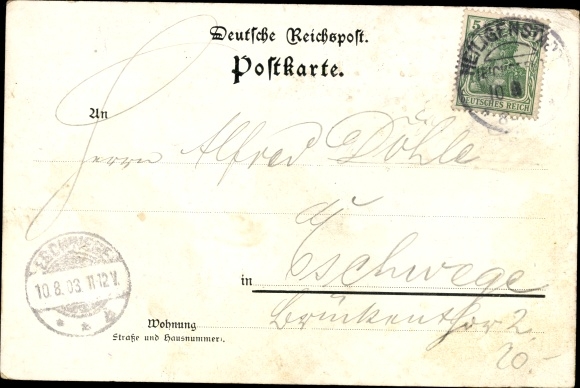 Deutsche Reichspost.
Postkarte.
5
HEILIGENSTADT
10 8
DEUTSCHES REICH
An
Herrn Alfred Döhle
in Eschwege
Brückenthor 2
Wohnung
Straße und Hausnummer.
20.-
ESCHWEGE
10.8.03 11-12V.